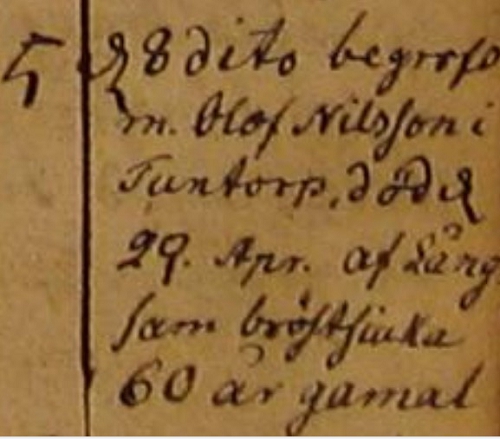 5 d 8 dito begrofs
m. Olof Nilsson i
Tuntorp, död d
29. Apr. af Lång
sam bröstsiuka
60 år gamal